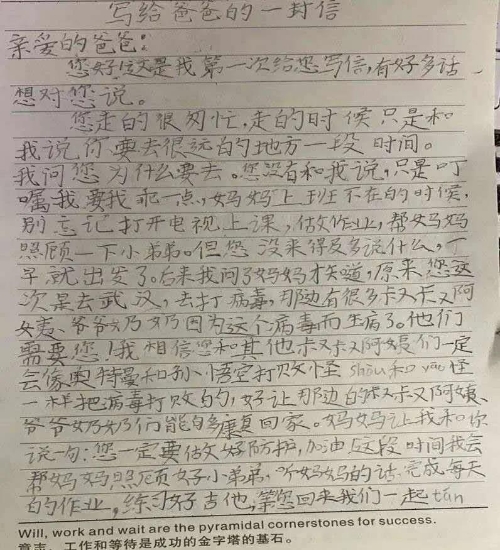 写给爸爸的一封信
亲爱的爸爸：
您好！这是我第一次给您写信，有好多话
想对您说。
您走的很匆忙，走的时候只是和
我说你要去很远的地方一段时间。
我问您为什么要去。您没有和我说，只是叮
嘱我要我乖一点，妈妈上班不在的时候，
别忘记打开电视上课，做作业，帮妈妈
照顾一下小弟弟。但您没来得及多说什么，一
早就出发了。后来我问了妈妈才知道，原来您这
次是去武汉，去打病毒，那边有很多叔叔阿
姨、爷爷奶奶因为这个病毒而生病了。他们
需要您！我相信您和其他叔叔阿姨们一定
会像奥特曼和孙悟空打败怪shòu和yāo怪
一样把病毒打败的，好让那边的叔叔阿姨、
爷爷奶奶们能够康复回家。妈妈让我和你
说一句：您一定要做好防护，加油！这段时间我会
帮妈妈照顾好小弟弟，听妈妈的话，完成每天
的作业，练习好吉他，等您回来我们一起tán
Will, work and wait are the pyramidal cornerstones for success.
意志、工作和等待是成功的金字塔的基石。